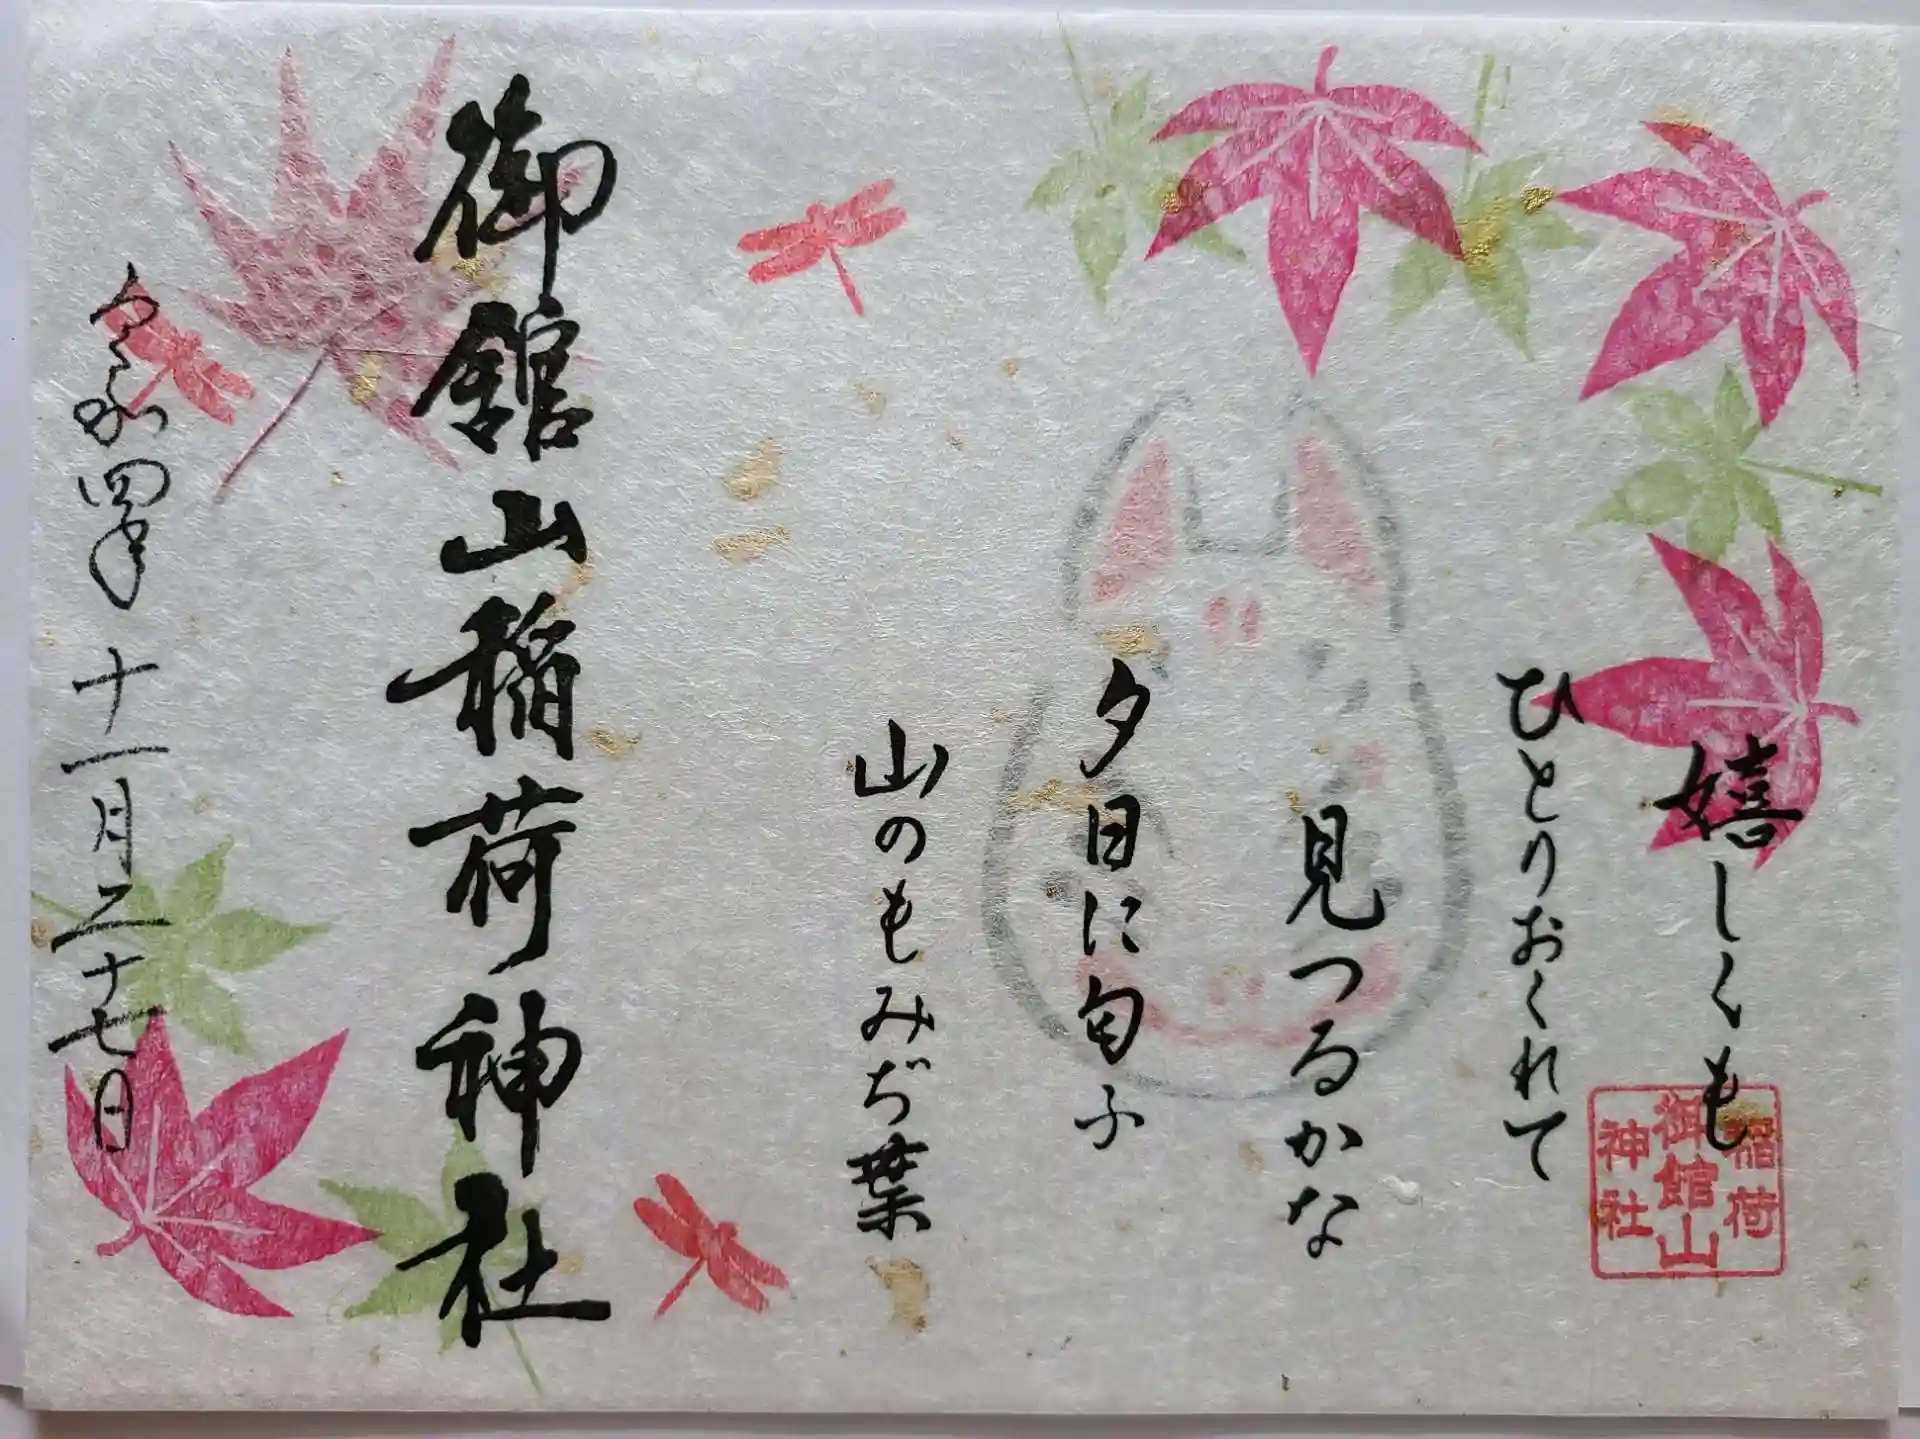 嬉しくも
ひとりおくれて
見つるかな
夕日に匂ふ
山のもみぢ葉
御館山稲荷神社
令和四年十一月二十七日
稲荷
御館山
神社